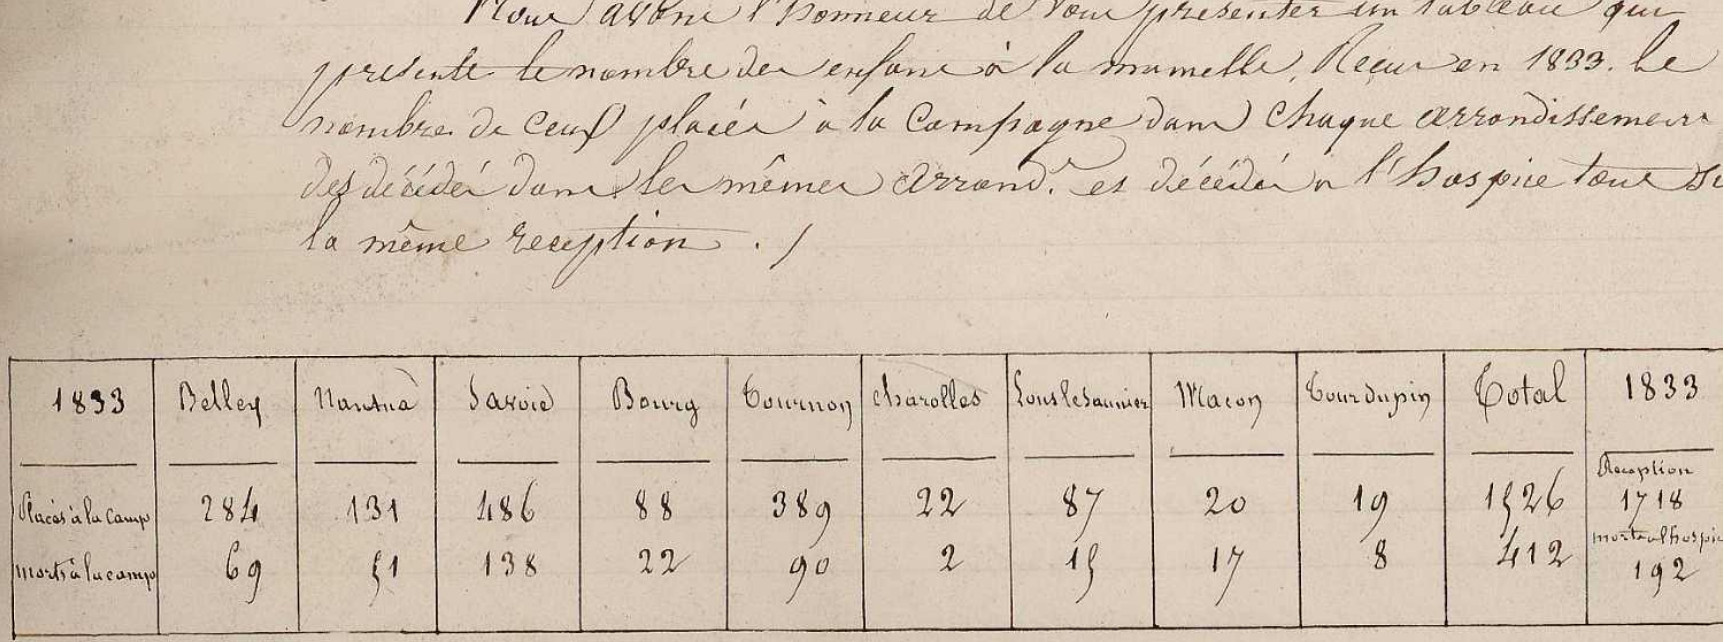 Nous avons l'honneur de vous présenter un tableau qui
présente le nombre des enfans à la mamelle, Reçus en 1833. Le
nombre de ceux placés à la Campagne dans Chaque arrondissement
des décédés dans les mêmes arrond.t et décédés à l'hospice tous
la même reception ./
1833 Belley Nantua Savoie Bourg Tournon charolles Lons le Saunier Macon Tour du pin Total 1833
Reception
Placés à la Camp 284 131 486 88 389 22 87 20 19 1526 1718
morts à l'hospice
morts à la camp 69 51 138 22 90 2 15 17 8 412 192